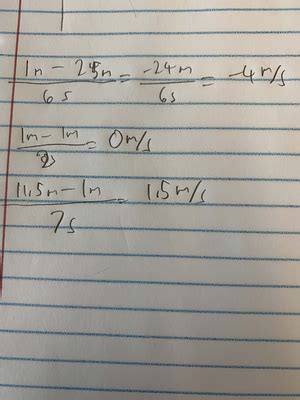 1m - 25m / 6s = -24m / 6s = -4m/s
1m - 1m / 2s = 0m/s
11.5m - 1m / 7s = 1.5m/s